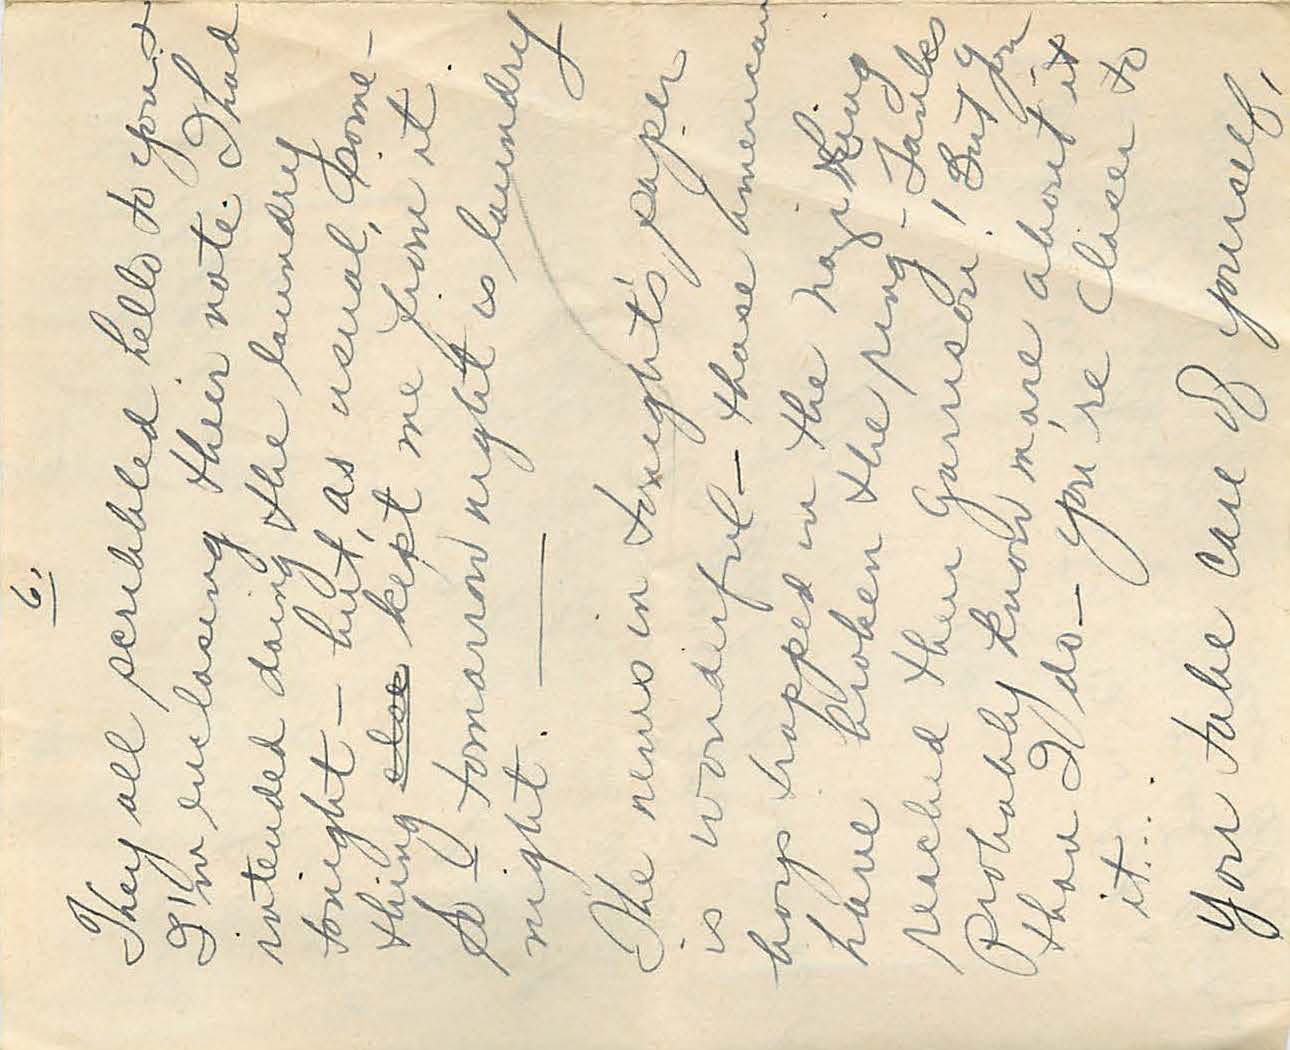 6.
They all scribbled hello to you &
I'm enclosing their note. I had
intended doing the laundry
tonight — but, as usual, some-
thing else kept me from it.
So — tomorrow night is laundry
night.
The news in tonight's paper
is wonderful — those American
boys trapped in the nazi ring
have broken the ring — Tanks
reached their garrison! But you
Probably know more about it
than I do — you're closer to
it...
You take care of yourself,